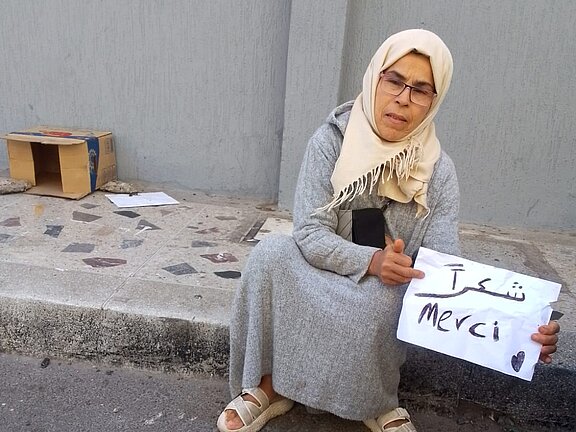 شكراً
Merci